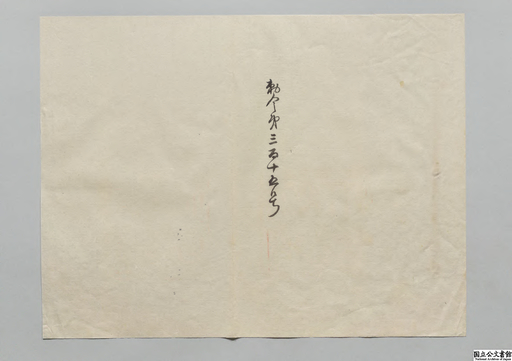 勅令第三百十五号
国立公文書館
National Archives of Japan